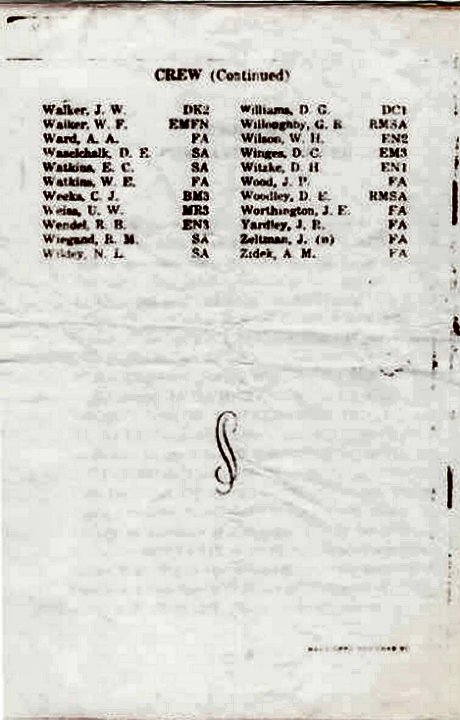 CREW (Continued)
Walker, J. W. DK2
Walker, W. F. EMFN
Ward, A. A. FA
Waselchalk, D. E. SA
Watkins, E. C. SA
Watkins, W. E. FA
Weeks, C. J. BM3
Weiss, U. W. MR3
Wendel, R. B. EN3
Wiegand, R. M. SA
Wildey, N. L. SA
Williams, D. G. DC1
Willoughby, G. R. RMSA
Wilson, W. H. EN2
Winges, D. C. EM3
Witzke, D. H. EN1
Wood, J. P. FA
Woodley, D. E. RMSA
Worthington, J. E. FA
Yardley, J. R. FA
Zeltman, J. (n) FA
Zidek, A. M. FA